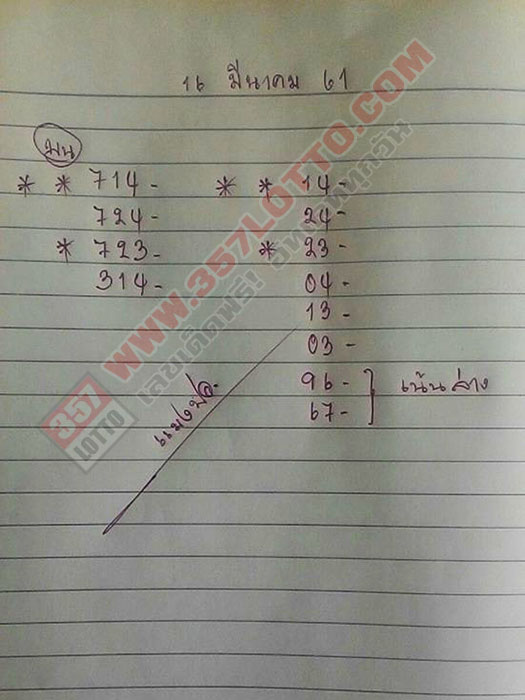 16 มีนาคม 61
บน
* * 714-
724-
* 723-
314-
* * 14-
24-
* 23-
04-
13-
03-
96-
67-
เน้นล่าง
WWW.357LOTTO.COM
เลขเด็ดฟรี! อัพเดททุกวัน
357
LOTTO